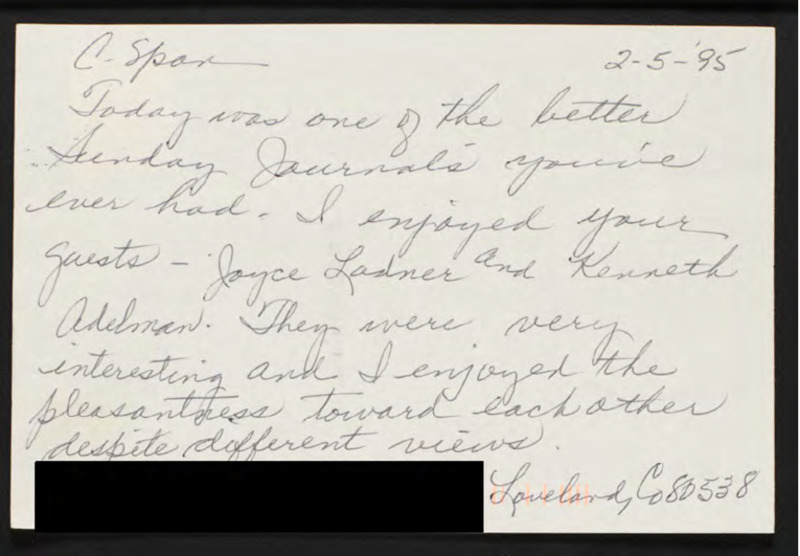 C-Span 2-5-'95
Today was one of the better
Sunday Journals you've
ever had. I enjoyed your
guests - Joyce Ladner and Kenneth
Adelman. They were very
interesting and I enjoyed the
pleasantness toward each other
despite different views.
Loveland, Co 80538